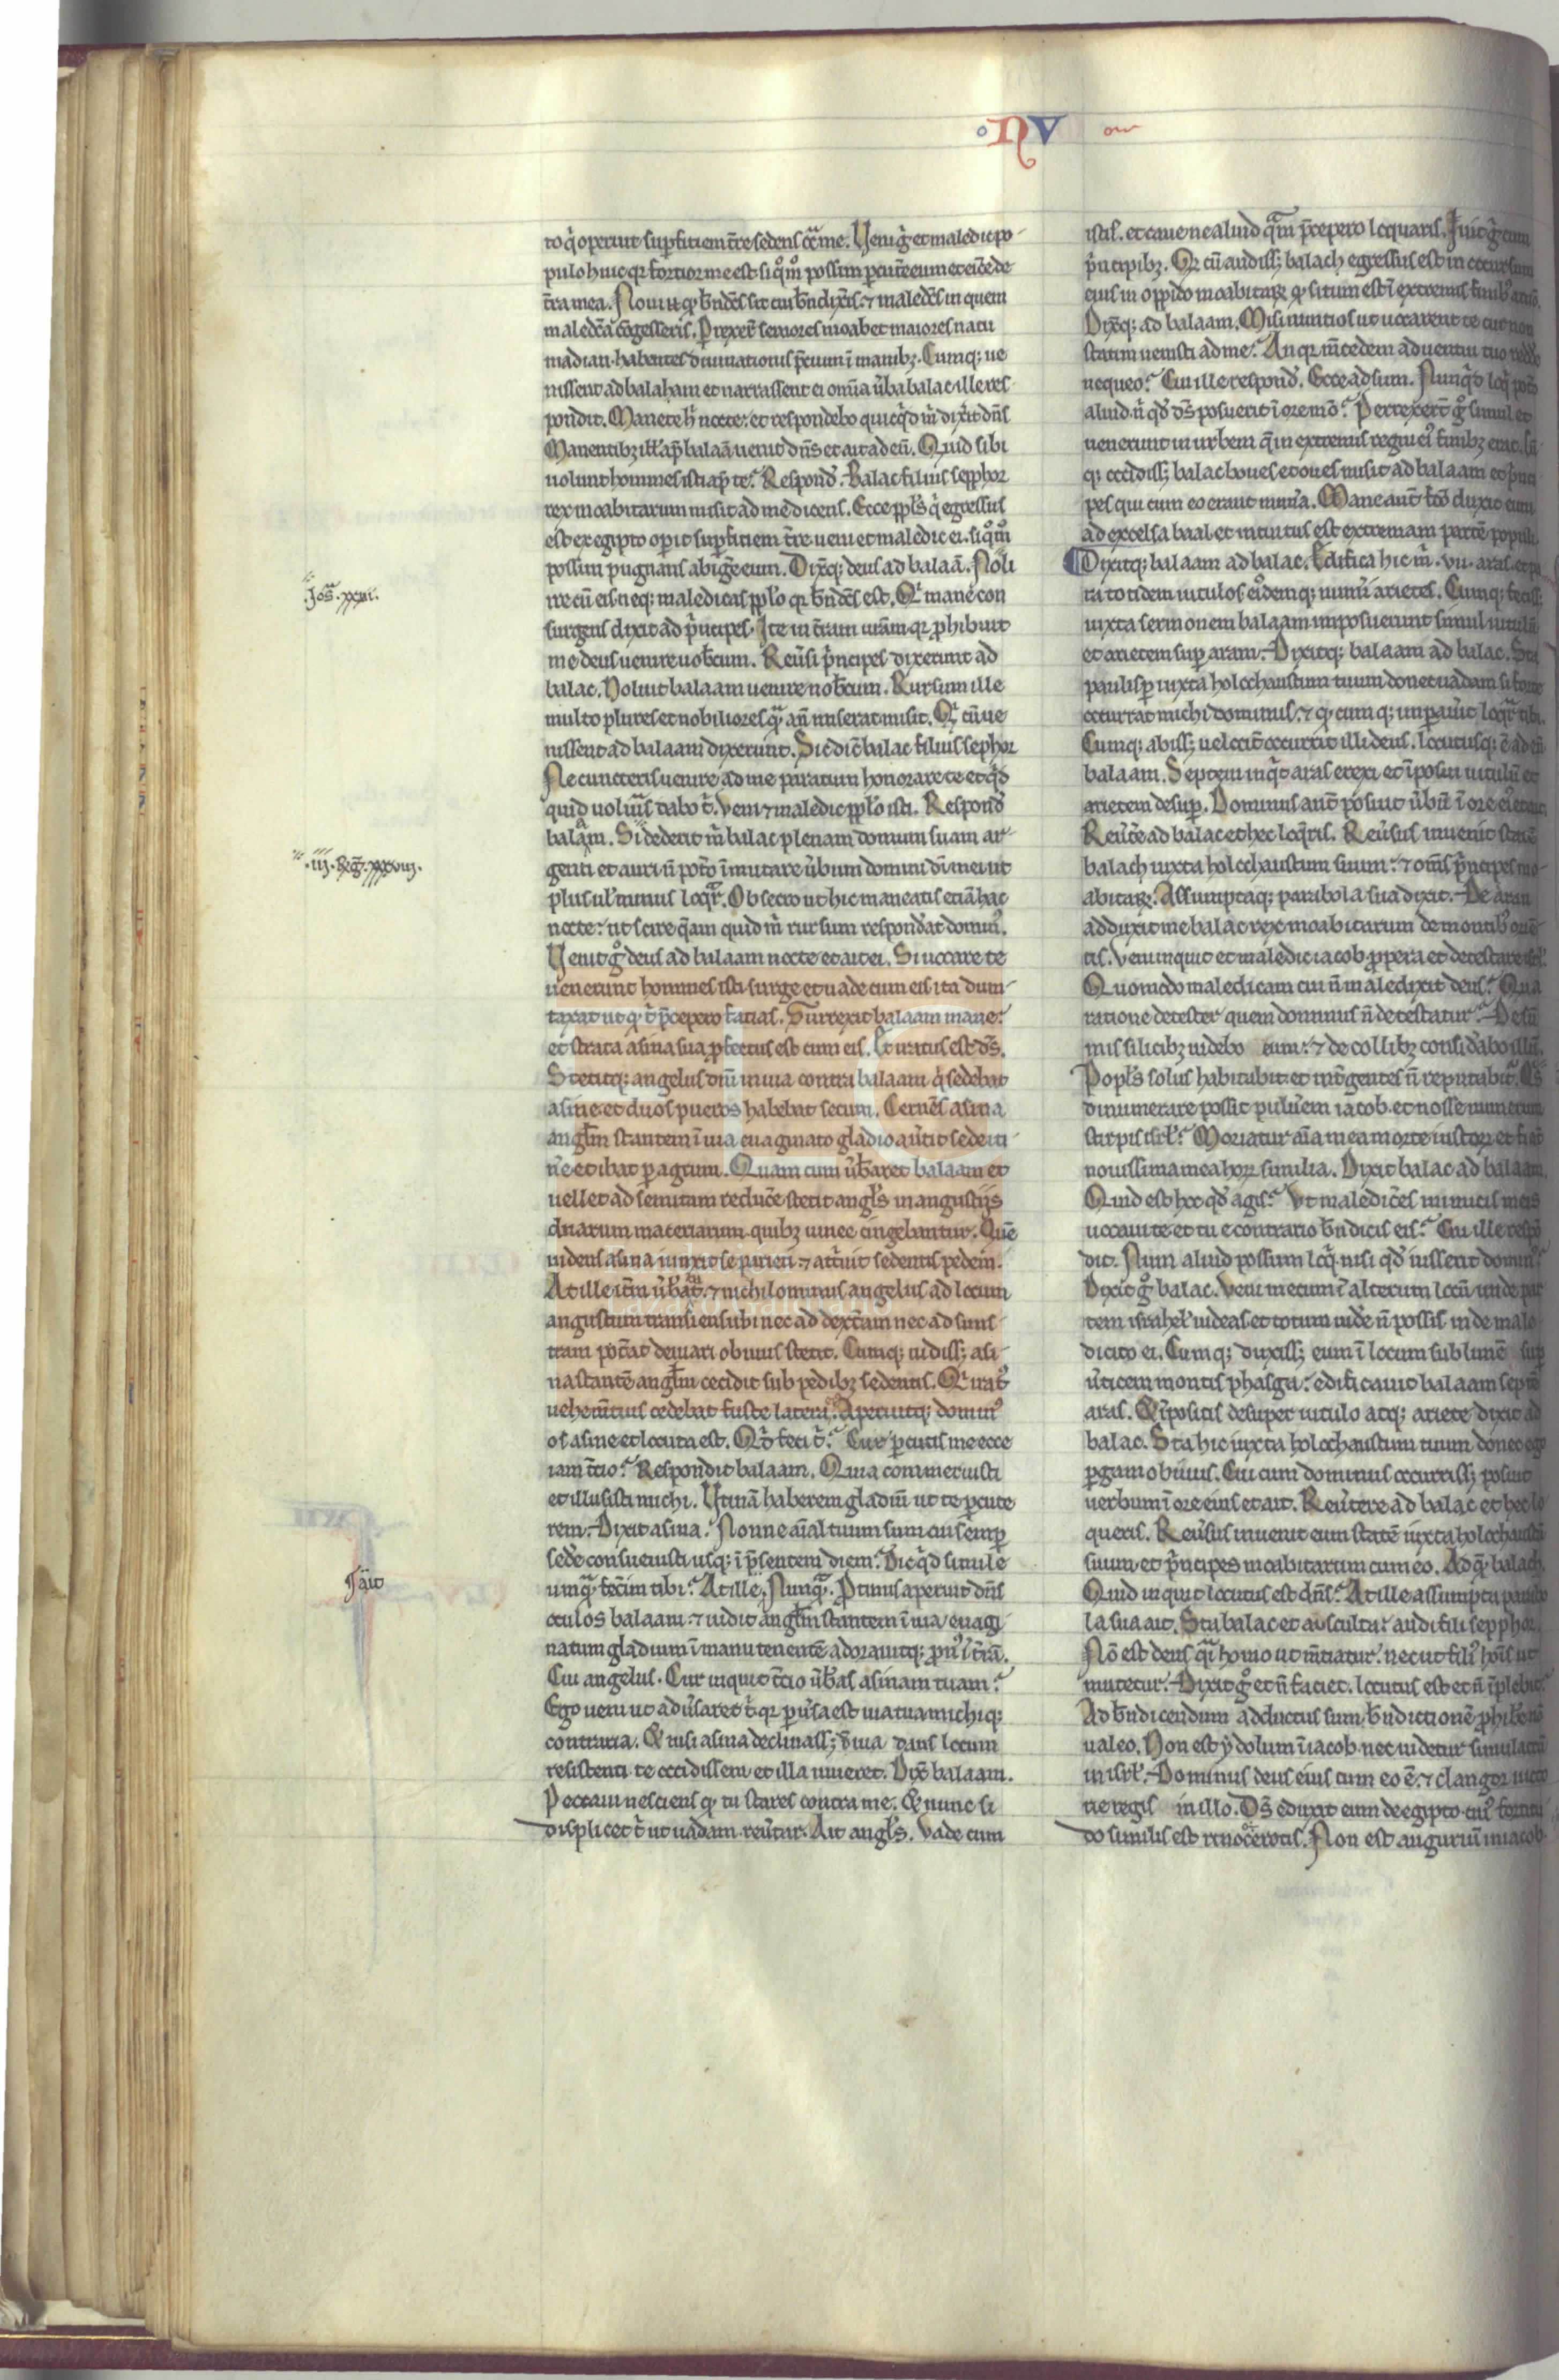 NV
to q̓ operuit sup̱ficiem t̄re sedens ↄ̓ me. Veni g̓ et maledic po-
pulo huic qr fortior me est si q̊ m̊ possim p̱cut̄e eum et eic̄e de
t̄ra mea. Noui .n. qđ bn̄dc̄s sit cui bn̄dix̄is. ⁊ maledc̄s in quem
maledc̄a ↄgesseris. Prexer̄t seniores moab et maiores natu
madian. habentes diuinationis p̄cium ī manibꝫ. Cumqꝫ ue
nissent ad balaham et narrassent ei om̄ia ūba balac ille res
pondit. Manete h̄ nocte: et respondebo quicq̓d m̓ dix̓it dn̄s
Manentibꝫ ill̓ ap̄ balaā uenit dn̄s et ait ad eū. Quid sibi
uolunt homines isti ap̄ te? Respond̓. Balac filius sepphor
rex moabitarum misit ad me dicens. Ecce pp̄ls q̓ egressus
est ex egipto op̱it sup̱ficiem t̄re ueni et maledic ei. si q̊ m̊
possim pugnans abig̓e eum. Dix̄qꝫ deus ad balaā. Noli
ire cū eis neqꝫ maledicas pp̄lo qr bn̄dc̄s est. Q̓ mane con
surgens dixit ad p̓ncipes. Ite in t̄ram ur̄am qr ꝓhibuit
me deus uenire uobcum. Reūsi p̓ncipes dixerunt ad
balac. Noluit balaam uenire nobcum. Rursum ille
multo plures et nobiliores q̓ an̄ miserat misit. Q̓ cū ue
nissent ad balaam dixerunt. Sic dic̄ balac filius sephor
Ne cuncteris uenire ad me paratum honorare te et q̓d
quid uoluis dabo t̓. veni ⁊ maledic pp̄lo isti. Respond̓
balaam. Si dederit m̓ balac plenam domum suam ar-
genti et auri n̄ pot̓o īmutare ūbum domini di̅ mei ut
plus ul̓ minus loqr̓. Obsecro ut hic maneatis etiā hac
nocte: ut scire q̄am quid m̓ rursum respond̓at domin̓.
Venit g̊ deus ad balaam nocte et ait ei. Si uocare te
uenerunt homines isti surge et uade cum eis ita dum-
taxat ut qđ t̓ p̄cepero facias. Surrexit balaam mane:
et strata asina sua ꝓfectus est cum eis. Et iratus est ds̄.
Stetitqꝫ angelus dn̄i in uia contra balaam q̓ sedebat
asine et duos pueros habebat secum. Cernēs asina
angl̄m stantem ī uia euaginato gladio aūtit se de iti-
n̄e et ibat p̱ agrum. Quam cum ūb̄aret balaam et
uellet ad semitam reduc̄e stetit angl̄s in angustijs
duarum maceriarum quibꝫ uinee cingebantur. Quē
uidens asina iunxit se parieti. ⁊ attriuit sedentis pedem.
At ille itm̄ ūbat. ⁊ nichilominus angelus ad locum
angustum transiens ubi nec ad dexteram nec ad sinis-
tram pot̓at deuiari obuius stetit. Cumqꝫ uidissꝫ asi-
na stantē angl̄m cecidit sub pedibꝫ sedentis. Q̓ irat̓
uehem̄tius cedebat fuste latera. Aperuitqꝫ domin̓
os asine et locuta est. Qd̓ feci t̓? Cur p̱cutis me ecce
iam t̄cio? Respondit balaam. Quia commeruisti
et illusisti michi. Vtinā haberem gladiū ut te p̱cute
rem. Dixit asina. Nonne aīal tuum sum cui semp̱
sed̓e consueuisti usqꝫ ī p̄sentem diem? Dic q̓d simile
umq̓ fec̄im tibi? At ille. Nunq̓. Protinus aperuit dn̄s
oculos balaam. ⁊ uidit angl̄m stantem ī uia euagi-
natum gladium ī manu tenentē adorauitqꝫ pn̓ ī t̄ra.
Cui angelus. Cur inquit t̄cio ūb̄as asinam tuam?
Ego ueni ut aduersaret̓ t̓ qr p̱ūsa est uia tua michiqꝫ
contraria. Et nisi asina declinassꝫ d̓ uia dans locum
resistenti te occidissem et illa uiueret. Dix̄ balaam.
Peccaui nesciens qđ tu stares contra me. Et nunc si
displicet t̓ ut uadam reūtar. Ait angl̄s. Vade cum
istis. et caue ne aliud q̓m p̄cepero loquaris. Iuit g̓ cum
p̓ncipibꝫ. Q̓ cū audissꝫ balach egressus est in occursum
eius in oppido moabitaꝝ qđ situm est ī extremis finib̓
Dix̄qꝫ ad balaam. Misi nuntios ut uocarent te cur non
statim uenisti ad me? An qr m̄cedem aduentui tuo
nequeo? Cui ille respond̓. Ecce adsum. Nunq̓d loq̓ pot̓o
aliud n̓ qd̓ ds̄ posuerit ī ore mō? Perrexer̄t g̊ simul et
uenerunt in urbem q̄ in extremis regni ei̓ finibꝫ erat.
qꝫ occidissꝫ balac boues et oues misit ad balaam et p̓nci
pes qui cum eo erant mun̄a. Mane aut̄ fc̄o duxit eum
ad excelsa baal et intuitus est extremam partē populi.
Dixitqꝫ balaam ad balac. Edifica hic m̓ .vii. aras. et pa
ra totidem uitulos ei̓demqꝫ num̄i arietes. Cumqꝫ fecissꝫ
iuxta sermonem balaam imposuerunt simul uitulū
et arietem sup̱ aram. Dixitqꝫ balaam ad balac. Sta
paulisp̱ iuxta holochaustum tuum donec uadam si forte
occurrat michi dominus. ⁊ qđcumqꝫ imp̱auit loqr̓ tibi.
Cumqꝫ abissꝫ uelocit̓ occurrit illi deus. locutusqꝫ ē ad eū
balaam. Septem inq̓t aras erexi et īposui uitulū et
arietem desup̱. Dominus aut̄ posuit ūbū ī ore ei̓
Reūt̄e ad balac et hec loq̓ris. Reūsus inuenit
balach iuxta holochaustum suum. ⁊ om̄s p̓ncipes mo-
abitaꝝ. Assumptaqꝫ parabola sua dixit. De aran
adduxit me balac rex moabitarum de montib̓
tis. veni inquit et maledic iacob ꝓpera et detestare isrl̓.
Quomodo maledicam cui n̄ maledixit deus? Qua
ratione detester quem dominus n̄ detestatur? De sū
mis silicibꝫ uidebo eum. ⁊ de collibꝫ consid̓abo illū.
Popl̄s solus habitabit. et int̓ gentes n̄ reputabit̓. Q̓s
dinumerare possit puluerem iacob. et nosse numerum
stirpis isrl̓? Moriatur aīa mea morte iustoꝝ et fiat
nouissima mea hoꝝ similia. Dixit balac ad balaam
Quid est hoc qd̓ agis? Vt maledic̄es inimicis meis
uocaui te et tu e contrario bn̄dicis eis? Cui ille respō
dit. Num aliud possum loq̓ nisi qd̓ iusserit domin̓?
Dixit g̊ balac. veni mecum ī alterum locū unde par
tem israhel̓ uideas et totum uid̓e n̄ possis inde male
dicito ei. Cumqꝫ duxissꝫ eum ī locum sublimē sup̱
ūticem montis phasga: edificauit balaam septē
aras. Et īpositis desuper uitulo atqꝫ ariete dixit ad
balac. Sta hic iuxta holochaustum tuum donec ego
p̱gam obuius. Cui cum dominus occurrissꝫ posuit
uerbum ī ore eius et ait. Reūtere ad balac et hec lo
queris. Reūsus inuenit eum stantē iuxta holochaustū
suum. et p̓ncipes moabitarum cum eo. Ad q̄ balach.
Quid inquit locutus est dn̄s? At ille assumpta parabo
la sua ait. Sta balac et ausculta: audi fili sepphor.
Nō est deus q̓i homo ut m̄tiatur. nec ut fili̓ hoīs ut
mutetur. Dixit g̊ et n̄ faciet. locutus est et n̄ īplebit?
Ad bn̄dicendum adductus sum. bn̄dictionē ꝓhibe nō
ualeo. Non est ydolum ī iacob. nec uidetur simulacrū
in isrl̓. Dominus deus eius cum eo ē. ⁊ clangor uicto
rie regis in illo. Ds̄ eduxit eum de egipto. cui̓ fortitu
do similis est rinocerotis. Non est auguriū in iacob.
Jos̄. xxiii.
.iij. Reg̓. xxviij.
ait